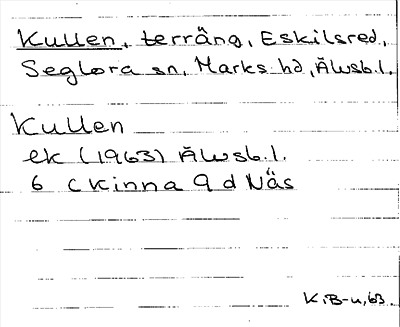 Kullen, terräng, Eskilsred,
Seglora sn, Marks hd, Älvsb.l.
Kullen
ek (1963) Älvsb.l.
6 c Kinna 9 d Näs
K.B-u, 63.